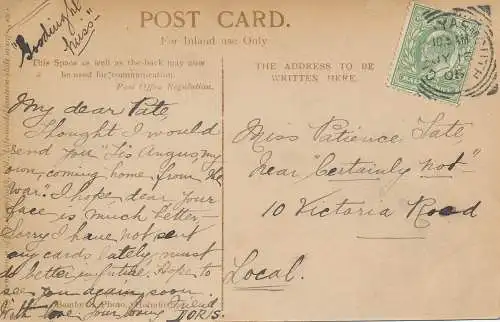 "Goodnight
Kiss"
POST CARD.
For Inland use Only
This Space as well as the back may now
be used for communication.
Post Office Regulation.
THE ADDRESS TO BE
WRITTEN HERE.
My dear Pate,
Thought I would
send you "Tis Angus, my
own, coming home from the
War." I hope dear your
face is much better
Sorry I have not sent
any cards lately, must
do better in future. Hope to
see you again soon.
With love your loving friend
DORIS.
Miss Patience Tate,
Near "Certainly not"
10 Victoria Road
Local.